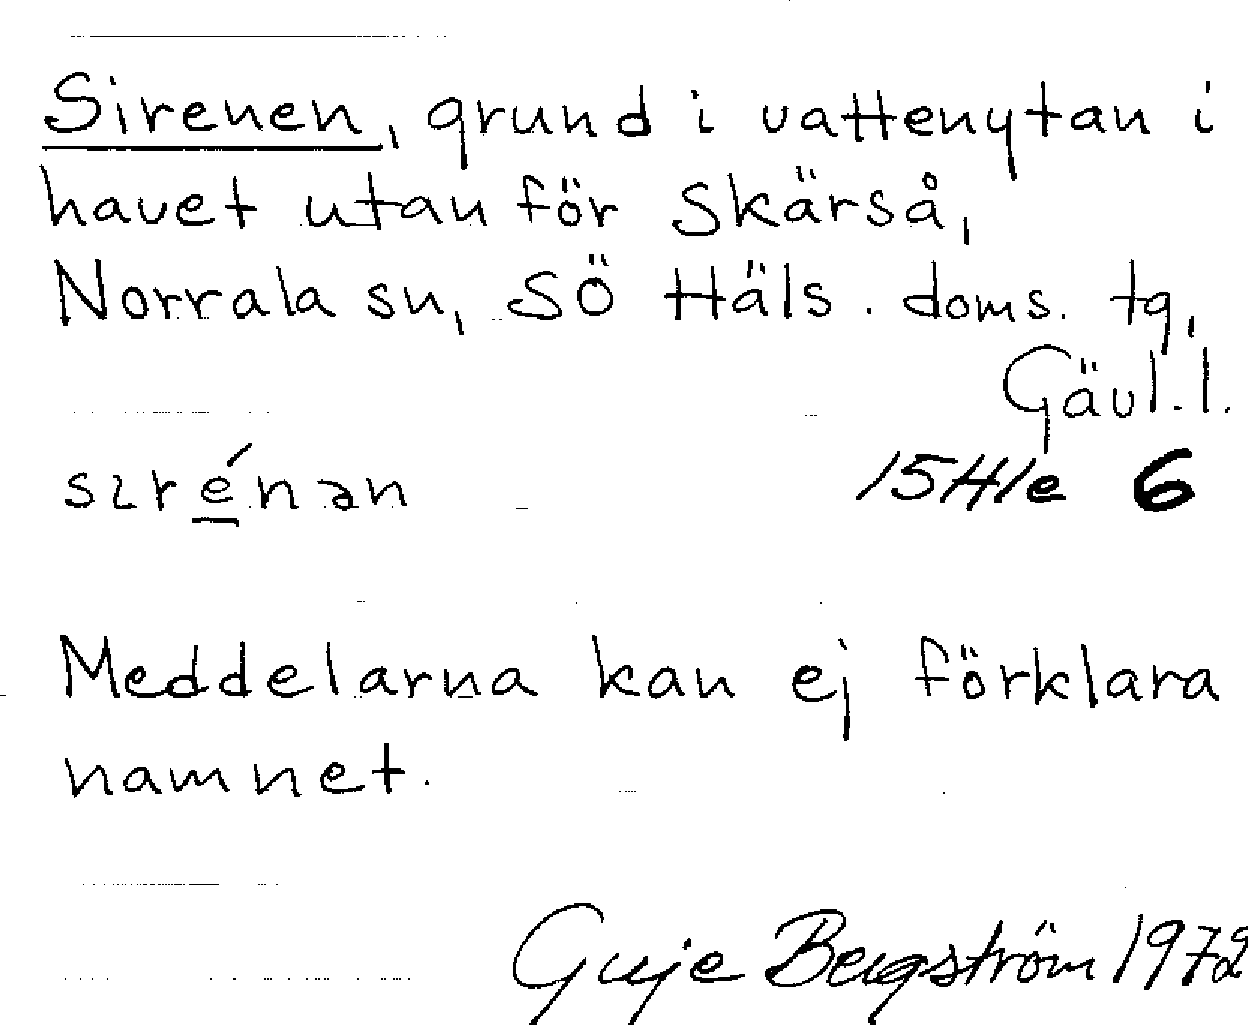 Sirenen, grund i vattenytan i
havet utanför Skärså,
Norrala sn, SÖ Häls. doms. tg,
Gävl. l.
sırénən 15H1e 6
Meddelarna kan ej förklara
namnet.
Guje Bergström 1972